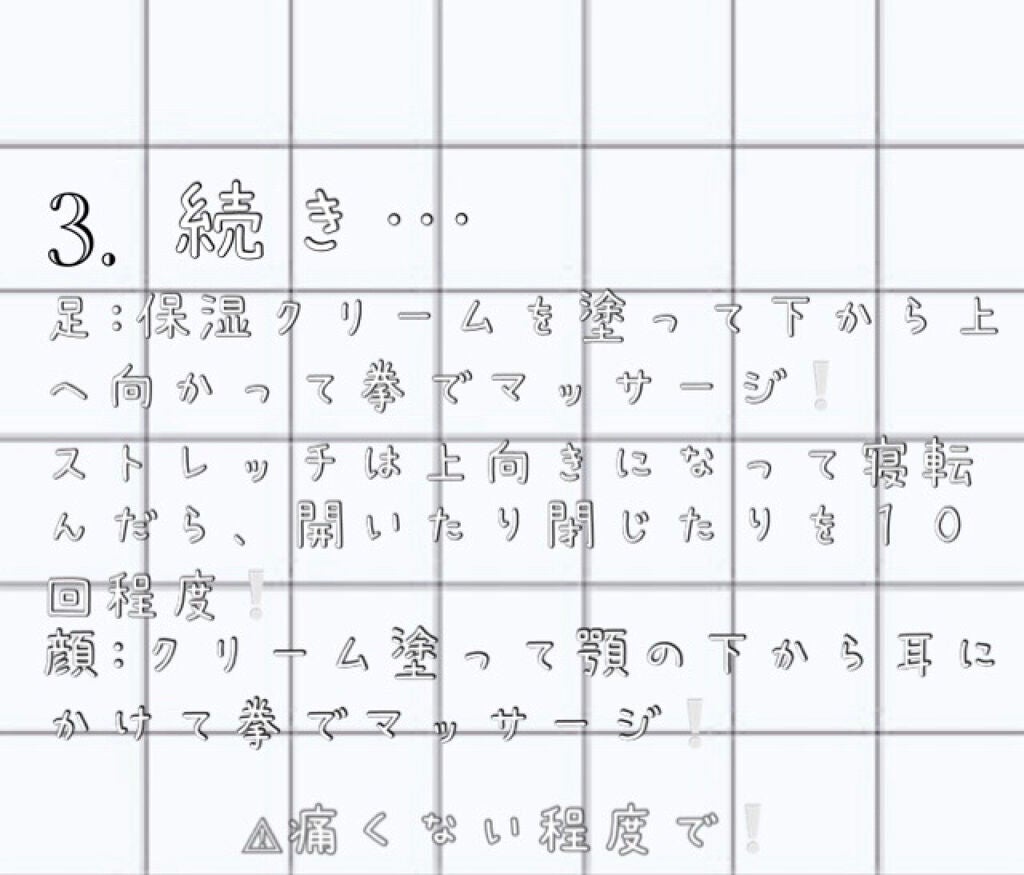 3. 続き…
足:保湿クリームを塗って下から上
へ向かって拳でマッサージ❕
ストレッチは上向きになって寝転
んだら、開いたり閉じたりを10
回程度❕
顔:クリーム塗って顎の下から耳に
かけて拳でマッサージ❕
⚠痛くない程度で❕